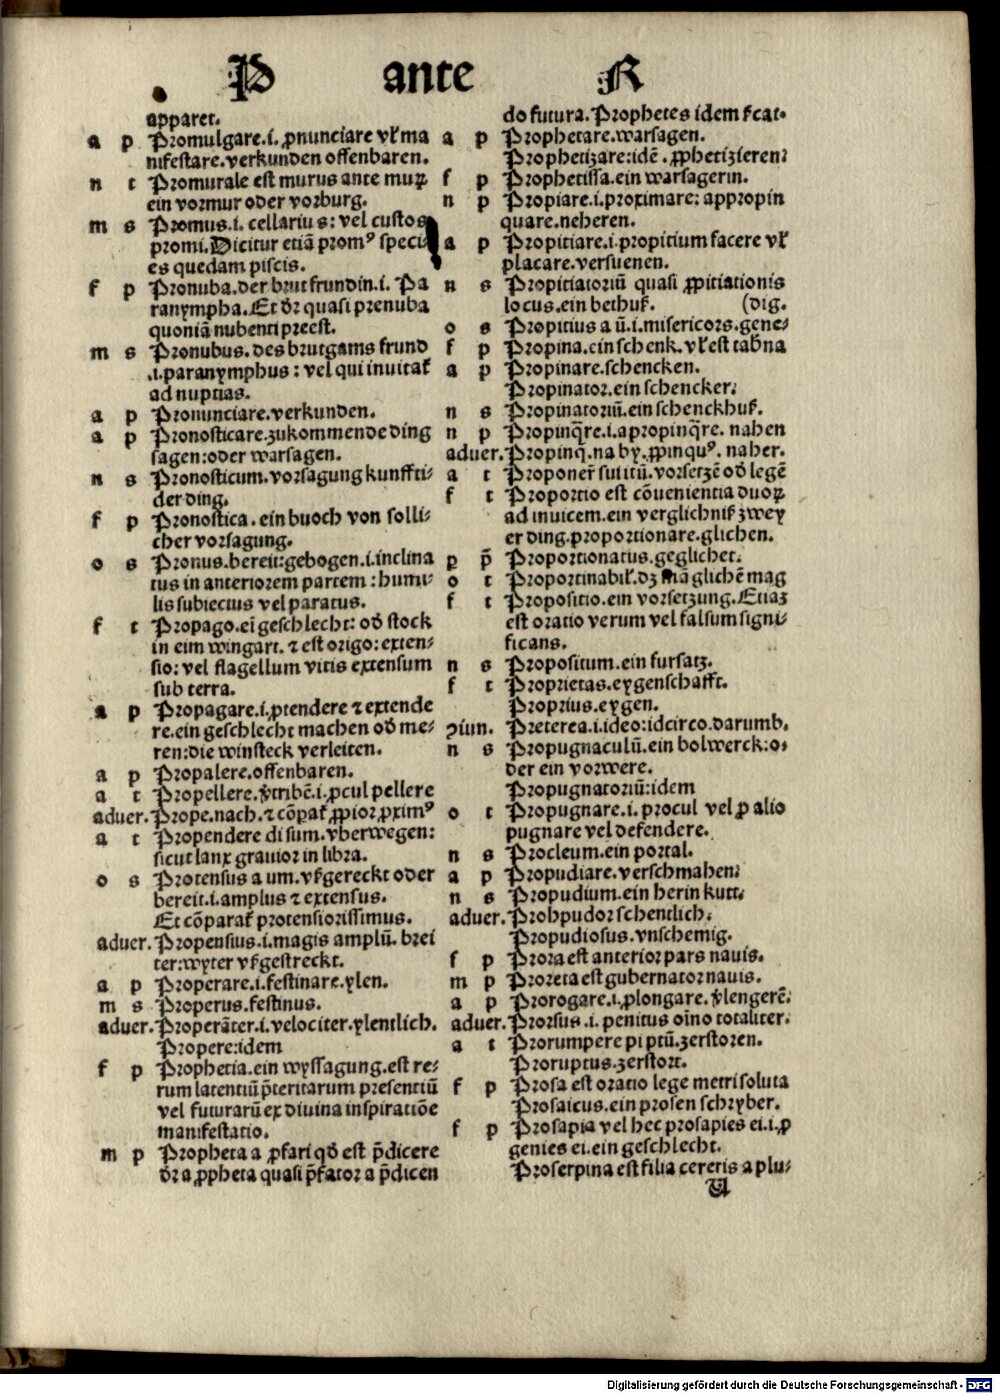 P ante R
apparet.
a p Promulgare.i. ꝓnunciare vł ma
nifestare.verkunden offenbaren.
n t Promurale est murus ante muꝝ
ein vormur oder vorburg.
m s Promus.i. cellarius: vel custos
promi. Dicitur etiā promꝰ speci⸗
es quedam piscis.
f p Pronuba.der brut frundin.i. Pa
ranympha.Et dr̄ quasi prenuba
quoniā nubenti preest.
m s Pronubus. des brutgams frund
.i.paranymphus: vel qui inuitat̄
ad nuptias.
a p Pronunciare.verkunden.
a p Pronosticare.zukommende ding
sagen:oder warsagen.
n s Pronosticum.vorsagung kunffti⸗
der ding.
f p Pronostica.ein buoch von solli⸗
cher vorsagung.
o s Pronus.bereit:gebogen.i.inclina
tus in anteriorem partem: humi⸗
lis subiectus vel paratus.
f t Propago.ei geschlecht: od̄ stock
in eim wingart. ⁊ est origo: exten⸗
sio: vel flagellum vitis extensum
sub terra.
a p Propagare.i.ꝓtendere ⁊ extende
re.ein geschlecht machen od̄ me⸗
ren:die winsteck verleiten.
a p Propalere.offenbaren.
a t Propellere.v̄tribē.i.ꝓcul pellere
aduer. Prope.nach.⁊ cōꝑat̄ ꝓpior ꝓximꝰ
a t Propendere di sum.vberwegen:
sicut lanx grauior in libra.
o s Protensus a um.vßgereckt oder
bereit.i.amplus ⁊ extensus.
Et cōparat̄ protensiorissimus.
aduer. Propensius.i.magis amplū. brei
ter:wyter vßgestreckt.
a p Properare.i.festinare.ylen.
m s Properus.festinus.
aduer. Properāter.i.velociter.ylentlich.
Propere:idem
f p Prophetia.ein wyssagung.est re⸗
rum latentiū p̄teritarum presentiū
vel futurarū ex diuina inspiratiōe
manifestatio.
m p Propheta a ꝓfari qd̄ est p̄dicere
dr̄a ꝓpheta quasi p̄fator a p̄dicen
do futura.Prophetes idem ßcat⸗
a p Prophetare.warsagen.
Prophetizare:idē. ꝓphetizieren:
f p Prophetissa.ein warsagerin.
n p Propiare.i.proximare: appropin
quare.neheren.
a p Propitiare.i.propitium facere vł
placare.versuenen.
n s Propitiatoriū quasi ꝓpitiationis
locus.ein bethuß. (dig.
o s Propitius a ū.i.misericors.gene⸗
f p Propina.ein schenk.vł est tab̄na
a p Propinare.schencken.
Propinator.ein schencker:
n s Propinatoriū.ein schenckhuß.
n p Propinq̄re.i.apropinq̄re. nahen
aduer. Propinq̄.na by.ꝓpinquꝰ. naher.
a t Proponer̄ sui itū.vorsetzē od̄ legē
f t Proportio est cōuenientia duoꝝ
ad inuicem.ein verglichniß zwey
er ding.proportionare.glichen.
p p̄ Proportionatus.geglichet.
o t Proportinabil̄.dz mā glichē mag
f t Propositio.ein vorsetzung.Etiaz
est oratio verum vel falsum signi⸗
ficans.
n s Propositum.ein fursatz.
f t Proprietas.eygenschafft.
Proprius.eygen.
ꝯiun. Preterea.i.ideo:idcirco.darumb.
n s Propugnaculū.ein bolwerck:o⸗
der ein vorwere.
Propugnatoriū:idem
o t Propugnare.i.procul vel ꝓ alio
pugnare vel defendere.
n s Procleum.ein portal.
a p Propudiare.verschmahen:
n s Propudium.ein herin kutt:
aduer. Prohpudor schentlich.
Propudiosus.vnschemig.
f p Prora est anterior pars nauis.
m p Proreta est gubernator nauis.
a p Prorogare.i.ꝓlongare.v̄lengerē.
aduer. Prorsus.i. penitus oīno totaliter.
a t Prorumpere pi ptū.zerstoren.
Proruptus.zerstort.
f p Prosa est oratio lege metri soluta
Prosaicus.ein prosen schryber.
f p Prosapia vel hec prosapies ei.i.ꝓ
genies ei.ein geschlecht.
Proserpina est filia cereris a plu⸗
A
Digitalisierung gefördert durch die Deutsche Forschungsgemeinschaft - DFG